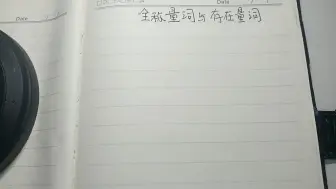 Date
全称量词与存在量词
Date